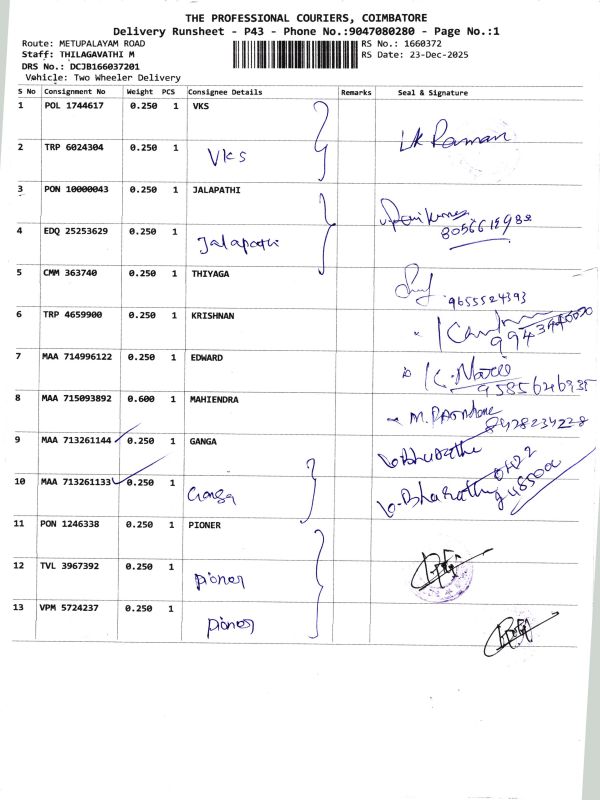 THE PROFESSIONAL COURIERS, COIMBATORE
Delivery Runsheet - P43 - Phone No.:9047080280 - Page No.:1
Route: METUPALAYAM ROAD RS No.: 1660372
Staff: THILAGAVATHI M RS Date: 23-Dec-2025
DRS No.: DCJB166037201
Vahicle: Two Wheeler Delivery
S No Consignment No Weight PCS Consignee Details Remarks Seal & Signature
1 POL 1744617 0.250 1 VKS
Raman
2 TRP 6024304 0.250 1
VKS
3 PON 10000043 0.250 1 JALAPATHI
4 EDQ 25253629 0.250 1
Jalapathi
5 CMM 363740 0.250 1 THIYAGA
9655524393
6 TRP 4659900 0.250 1 KRISHNAN
7 MAA 714996122 0.250 1 EDWARD
8 MAA 715093892 0.600 1 MAHIENDRA
8428234228
9 MAA 713261144 0.250 1 GANGA
10 MAA 713261133 0.250 1
Ganga
11 PON 1246338 0.250 1 PIONER
12 TVL 3967392 0.250 1
pioner
13 VPM 5724237 0.250 1
pioner